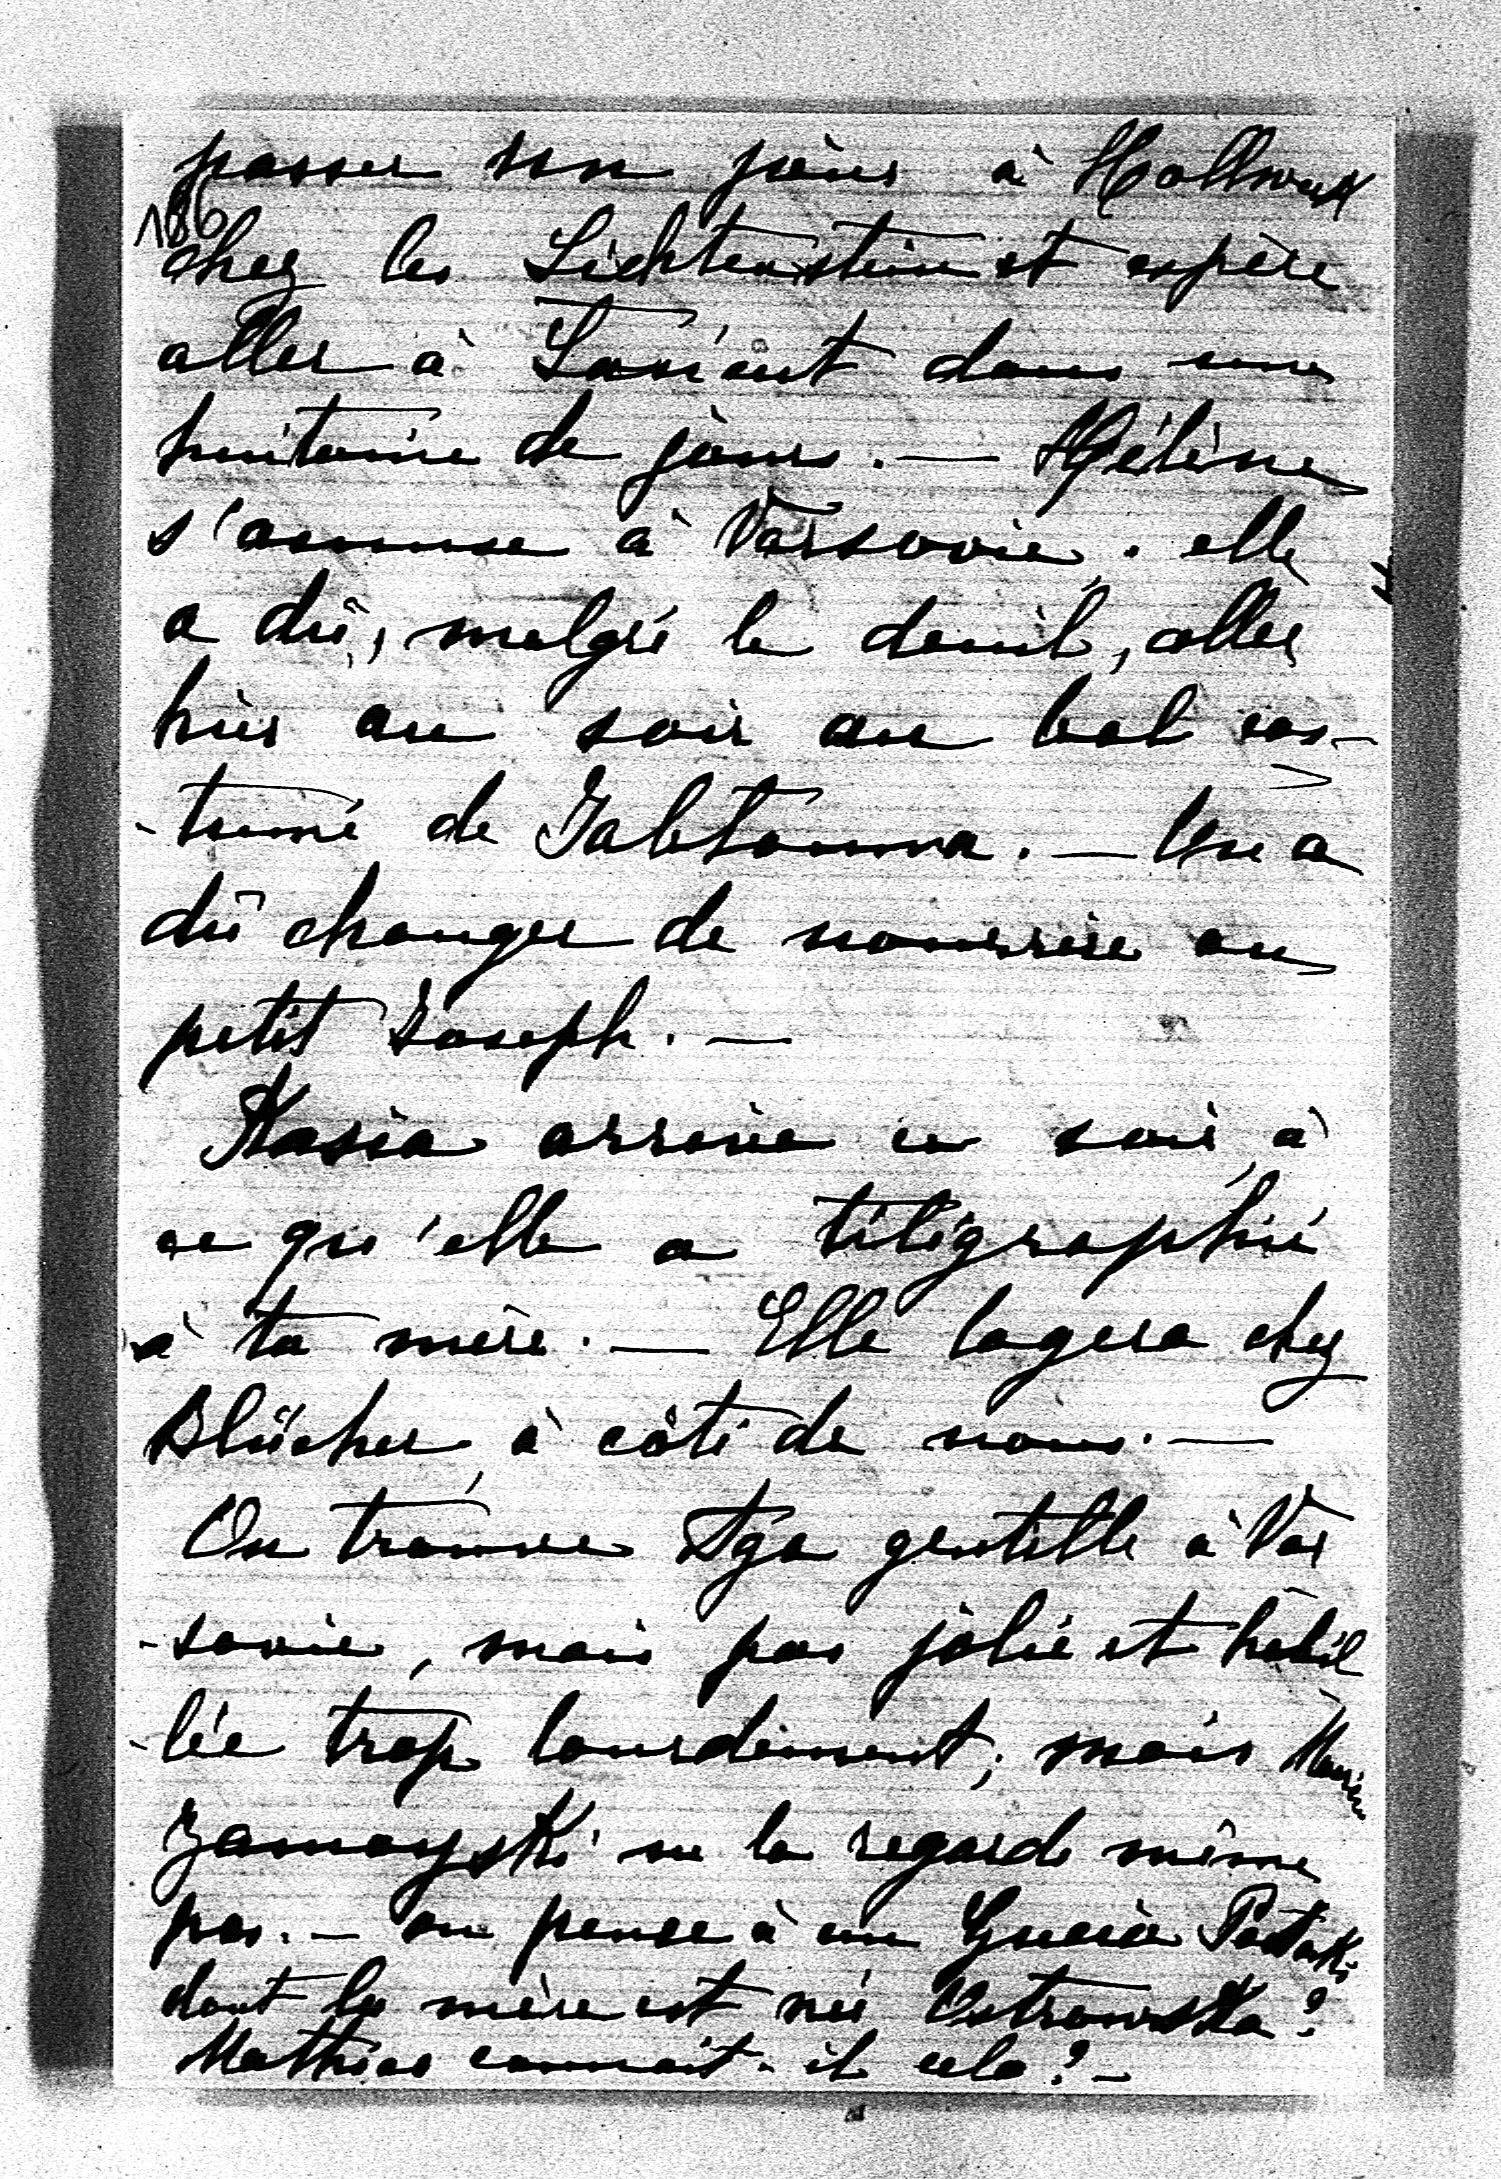 passer un jour à Hollnegk
186
chez les Lichtenstein et espère
aller à Lancut dans une
huitaine de jours. — Hélène
s'amuse à Varsovie. elle
a dû, malgré le deuil, aller
hier au soir au bal cos-
-tumé de Jabtonna. — On a
dû changer de nourrice au
petit Joseph. —
Kasia arrive ce soir à
ce qu'elle a télégraphié
à ta mère. — Elle logera chez
Blücher à côté de nous. —
On trouve Aga gentille à Var
-sovie, mais pas jolie et habil
-lée trop lourdement; mais
Zamoyski ne la regarde même
pas. — on pense à un Gucio Potocki
dont la mère est née Ostrowska?
Mathias connait-il cela? —